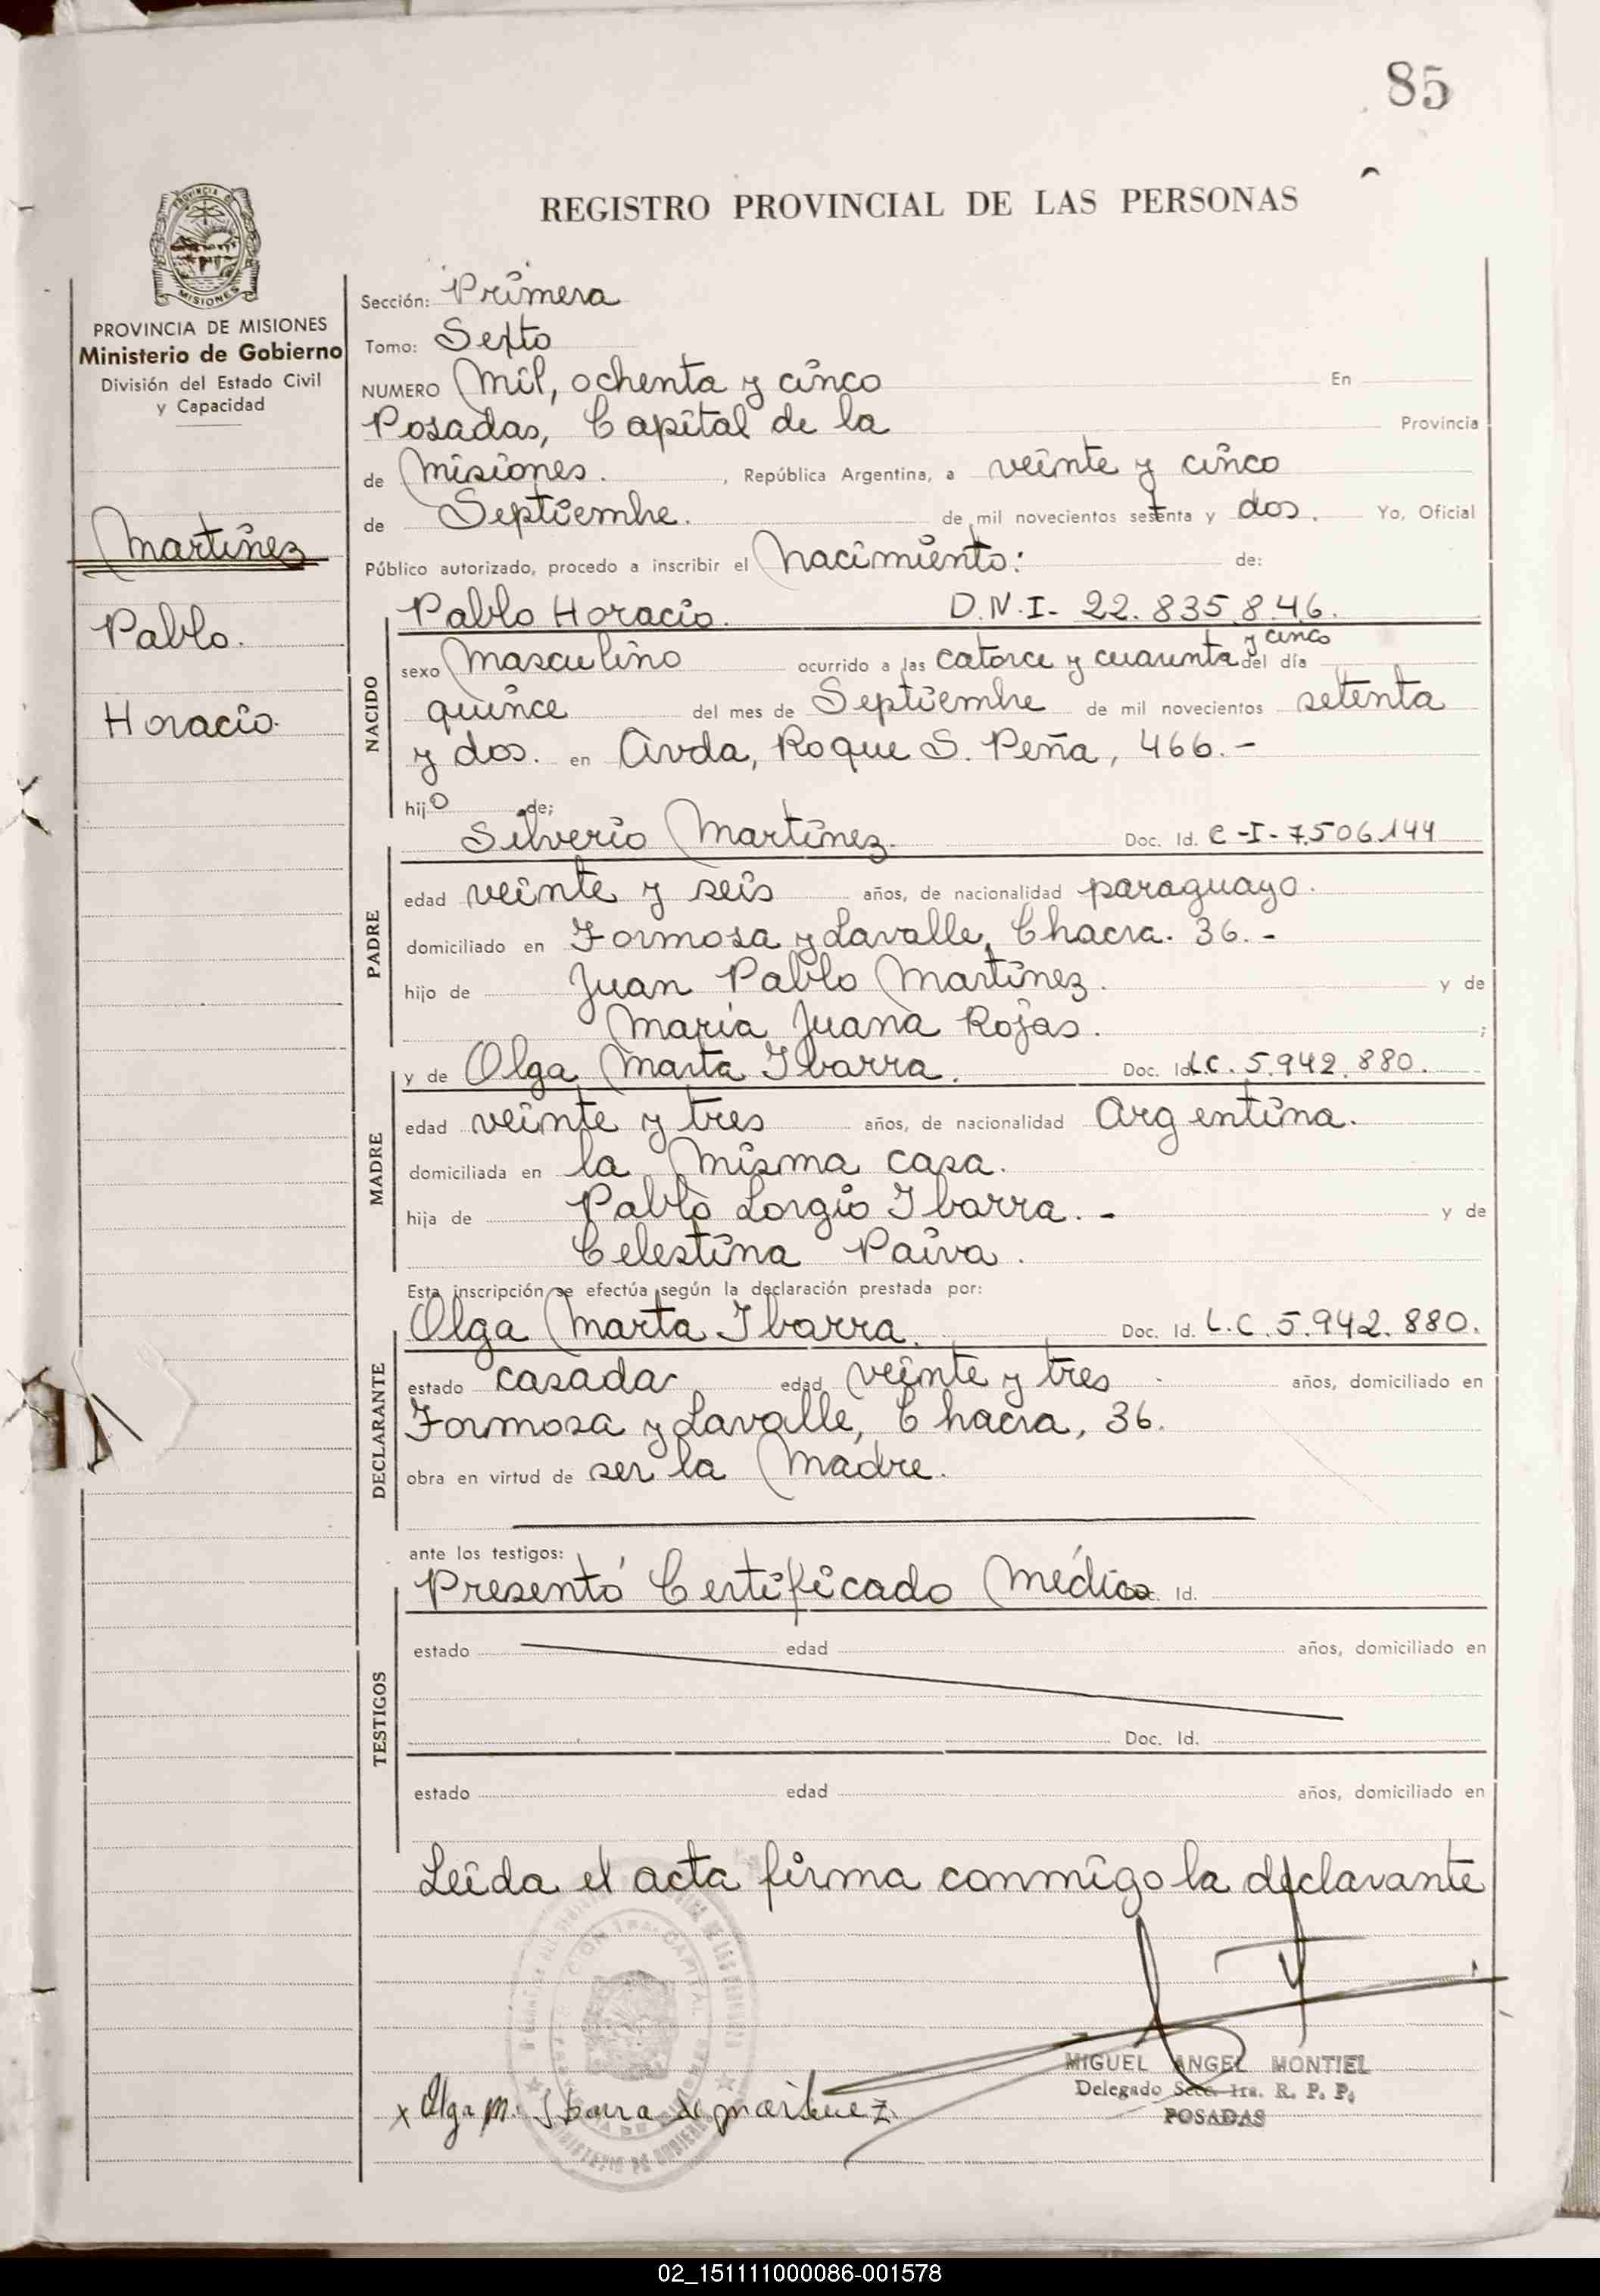 85
REGISTRO PROVINCIAL DE LAS PERSONAS
PROVINCIA DE MISIONES
MISIONES
PROVINCIA DE MISIONES
Ministerio de Gobierno
División del Estado Civil
y Capacidad
Martinez
Pablo.
Horacio.
Sección: Primera
Tomo: Sexto
NUMERO Mil, ochenta y cinco En
Posadas, Capital de la Provincia
de Misiones. , República Argentina, a veinte y cinco
de Septiembre. de mil novecientos setenta y dos. Yo, Oficial
Público autorizado, procedo a inscribir el Nacimiento: de:
NACIDO
Pablo Horacio. D.N.I- 22.835.846.
y cinco
sexo Masculino ocurrido a las catorce y cuarenta del día
quince del mes de Septiembre de mil novecientos setenta
y dos. en Avda, Roque S. Peña, 466.-
hijo de;
PADRE
Silverio Martinez. Doc. Id. C-I-7.506.144
edad veinte y seis años, de nacionalidad paraguayo.
domiciliado en Formosa y Lavalle, Chacra. 36.-
hijo de Juan Pablo Martinez. y de
María Juana Rojas. ;
MADRE
y de Olga Marta Ibarra. Doc. Id. L.C. 5.942.880.
edad veinte y tres años, de nacionalidad Argentina.
domiciliada en la misma casa.
hija de Pablo Lorgio Ibarra.- y de
Celestina Paiva.
Esta inscripción se efectúa según la declaración prestada por:
DECLARANTE
Olga Marta Ibarra. Doc. Id. L.C. 5.942.880.
estado casada edad veinte y tres años, domiciliado en
Formosa y Lavalle, Chacra, 36.
obra en virtud de ser la Madre.
ante los testigos:
TESTIGOS
Presentó Certificado Médico Doc. Id.
estado edad años, domiciliado en
Doc. Id.
estado edad años, domiciliado en
Leida el acta firma conmigo la declarante
MIGUEL ANGEL MONTIEL
Delegado Secc. 1ra. R. P. P.
POSADAS
x Olga M. Ibarra de Martinez
02_151111000086-001578